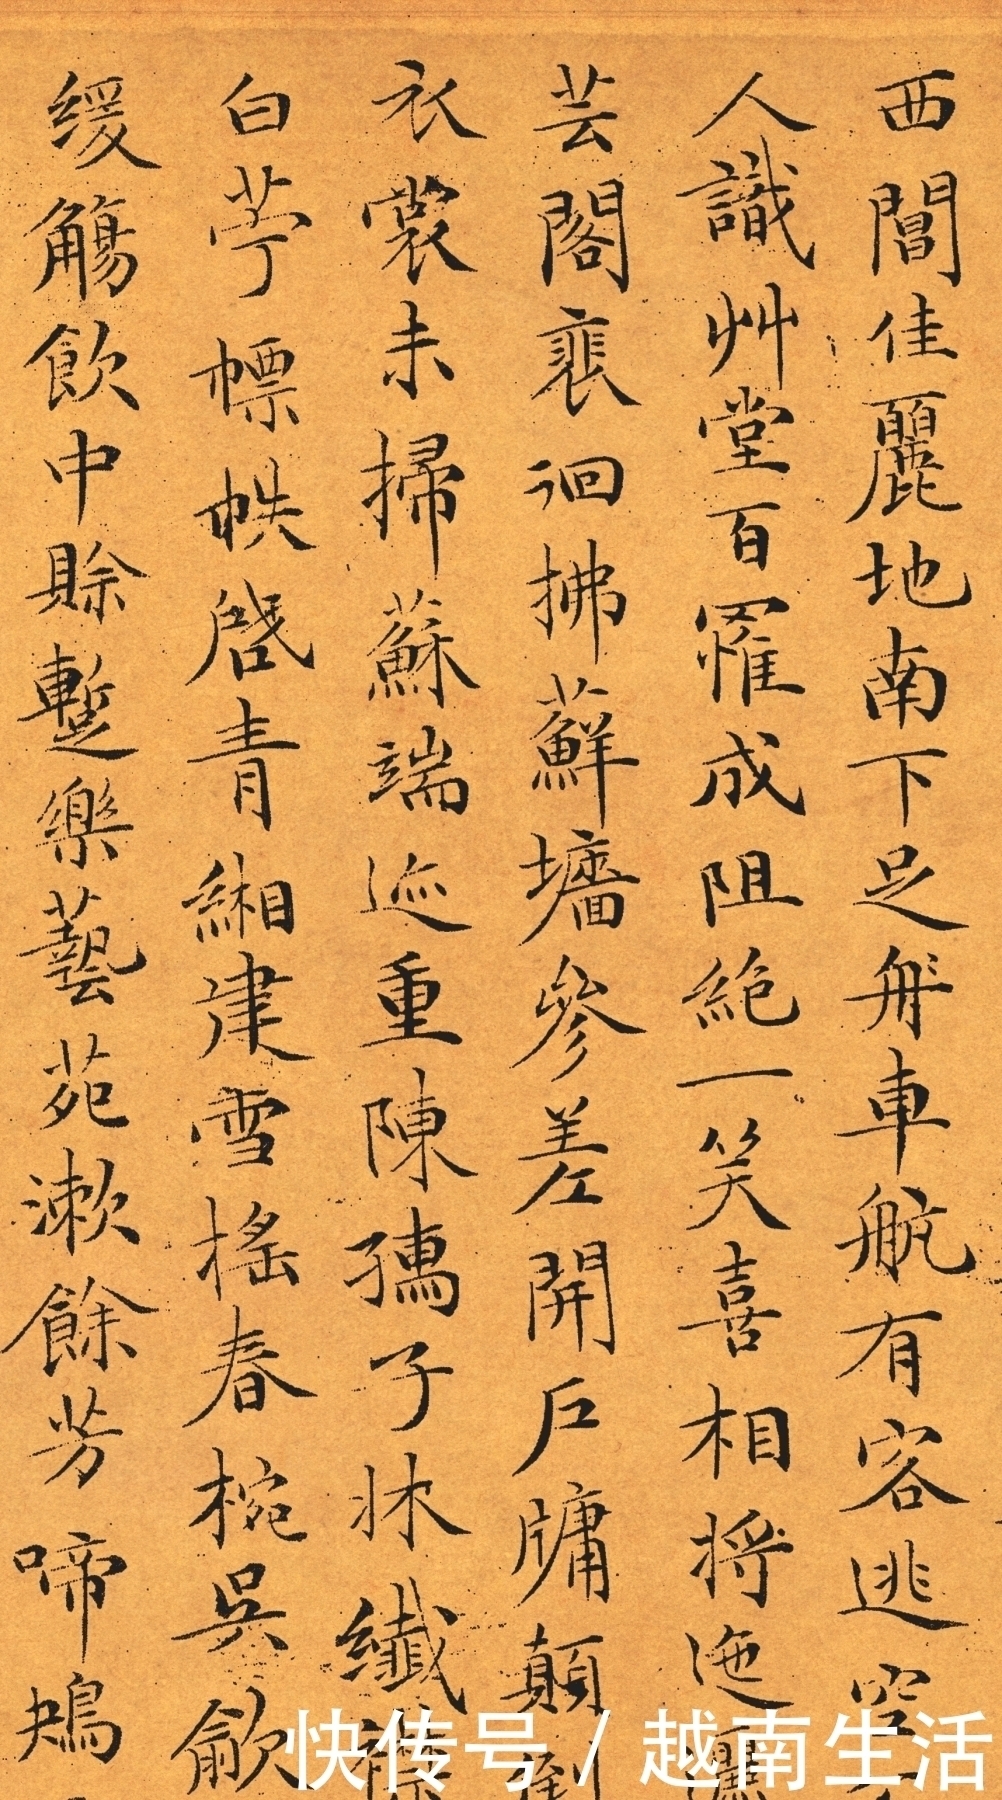 西閶佳麗地南下足舟車航有客逃空
人識艸堂百罹成阻絶一笑喜相將迤邐
芸閣裵徊拂蘚墻參差開戶牗顛倒
衣裳未掃蘇端迹重陳孺子牀纖襟
白苧幖帙啓青緗津雪搖春椀吳歈
緩觴飲中賖蹔樂藝苑漱餘芳啼鴂
快传号/越南生活